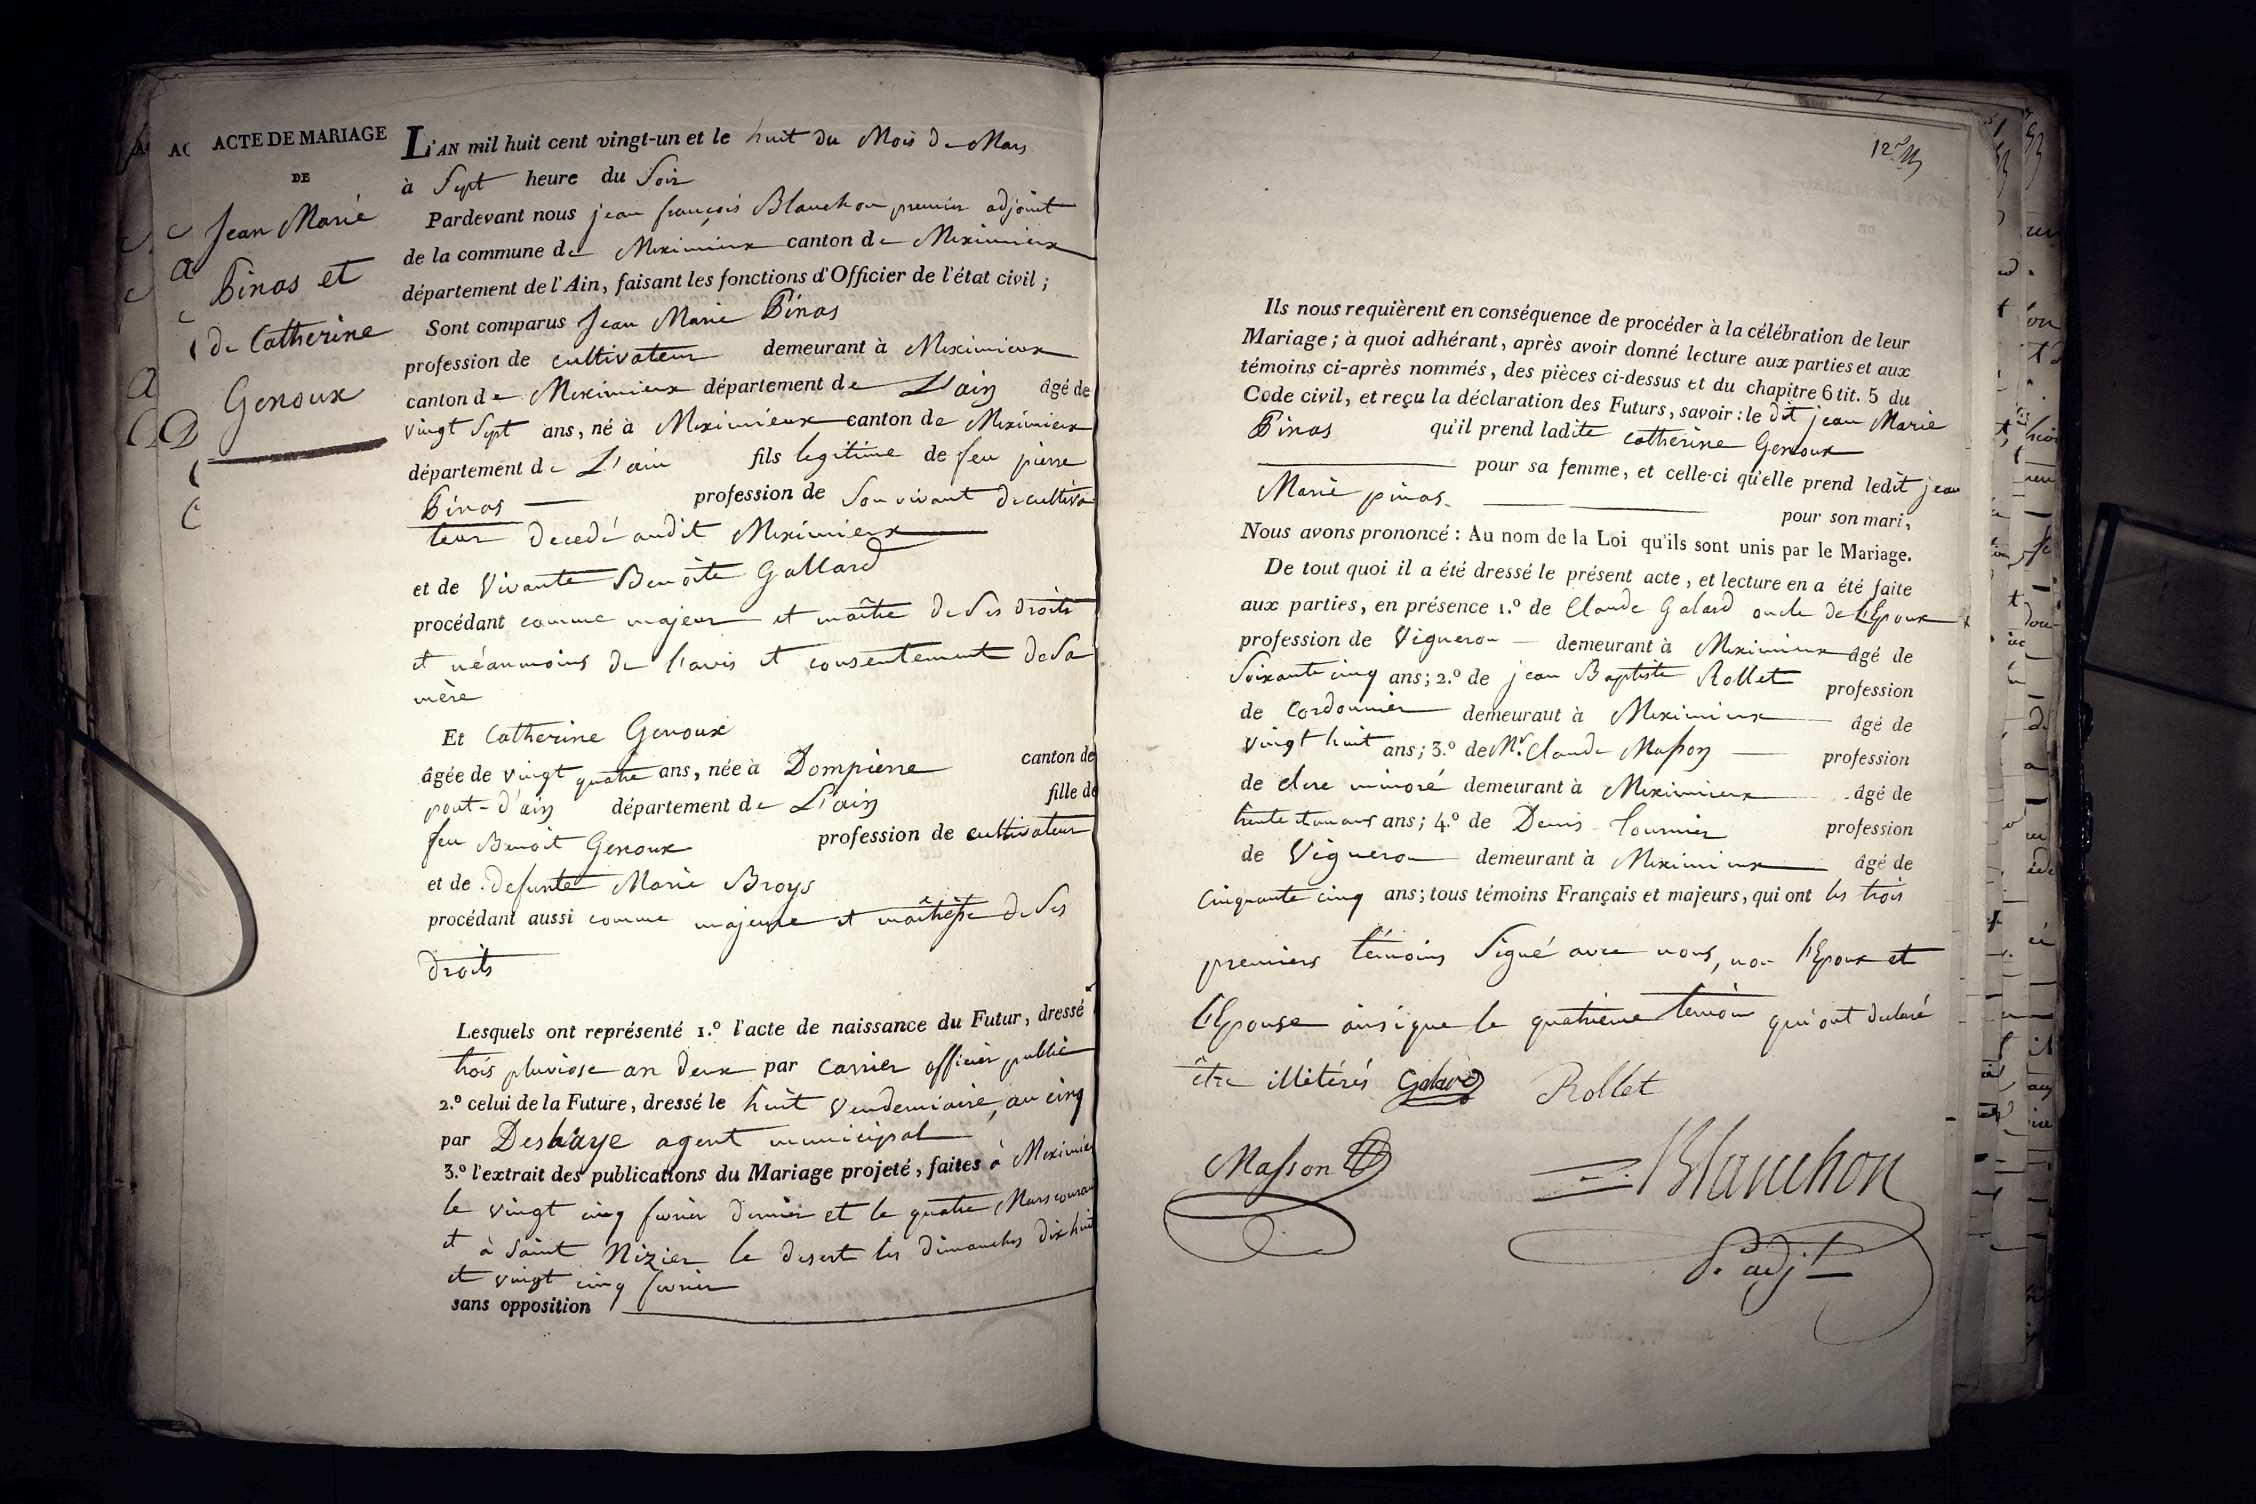 ACTE DE MARIAGE
DE
Jean Marie
Pinas et
de Catherine
Genoux
L'AN mil huit cent vingt-un et le huit du Mois de Mars
à Sept heure du Soir
Pardevant nous jean françois Blanchon premier adjoint
de la commune de Meximieux canton de Meximieux
département de l'Ain, faisant les fonctions d'Officier de l'état civil ;
Sont comparus Jean Marie Pinas
profession de cultivateur demeurant à Meximieux
canton de Meximieux département de L'ain âgé de
vingt Sept ans, né à Meximieux canton de Meximieux
département de L'ain fils legitime de feu pierre
Pinas profession de Son vivant de cultiva
teur decedé audit Meximieux
et de Vivante Benoite Gallard
procédant comme majeur et maître de Ses droits
et néanmoins de l'avis et consentement de Sa
mère
Et Catherine Genoux
âgée de vingt quatre ans, née à Dompierre canton de
pont-d'ain département de L'ain fille de
feu Benoit Genoux profession de cultivateur
et de defunte Marie Broys
procédant aussi comme majeure et maîtresse de Ses
droits
Lesquels ont représenté 1.º l'acte de naissance du Futur, dressé
trois pluviose an deux par Carrier officier public
2.º celui de la Future, dressé le huit Vendemiaire, an cinq
par Deshaye agent municipal
3.º l'extrait des publications du Mariage projeté, faites à Meximieu
le vingt cinq fevrier dernier et le quatre Mars courant
et à Saint Nizier le desert les dimanches dix huit
et vingt cinq fevrier
sans opposition
Ils nous requièrent en conséquence de procéder à la célébration de leur
Mariage ; à quoi adhérant, après avoir donné lecture aux parties et aux
témoins ci-après nommés, des pièces ci-dessus et du chapitre 6 tit. 5 du
Code civil, et reçu la déclaration des Futurs, savoir : le dit jean Marie
Pinas qu'il prend ladite catherine Genoux
pour sa femme, et celle-ci qu'elle prend ledit jean
Marie pinas. pour son mari,
Nous avons prononcé : Au nom de la Loi qu'ils sont unis par le Mariage.
De tout quoi il a été dressé le présent acte, et lecture en a été faite
aux parties, en présence 1.º de Claude Galard oncle de L'Epoux
profession de Vigneron demeurant à Meximieux âgé de
Soixante cinq ans ; 2.º de jean Baptiste Rollet profession
de Cordonnier demeurant à Meximieux âgé de
vingt huit ans ; 3.º de Mr. Claude Masson profession
de clerc minoré demeurant à Meximieux âgé de
trente ans ; 4.º de Denis Tournier profession
de Vigneron demeurant à Meximieux âgé de
Cinquante cinq ans ; tous témoins Français et majeurs, qui ont les trois
premiers témoins Signé avec nous, non l'Epoux et
l'Epouse ainsi que le quatrieme temoin qui ont declaré
être illitérés Galard Rollet
Masson Blanchon
P. adjt